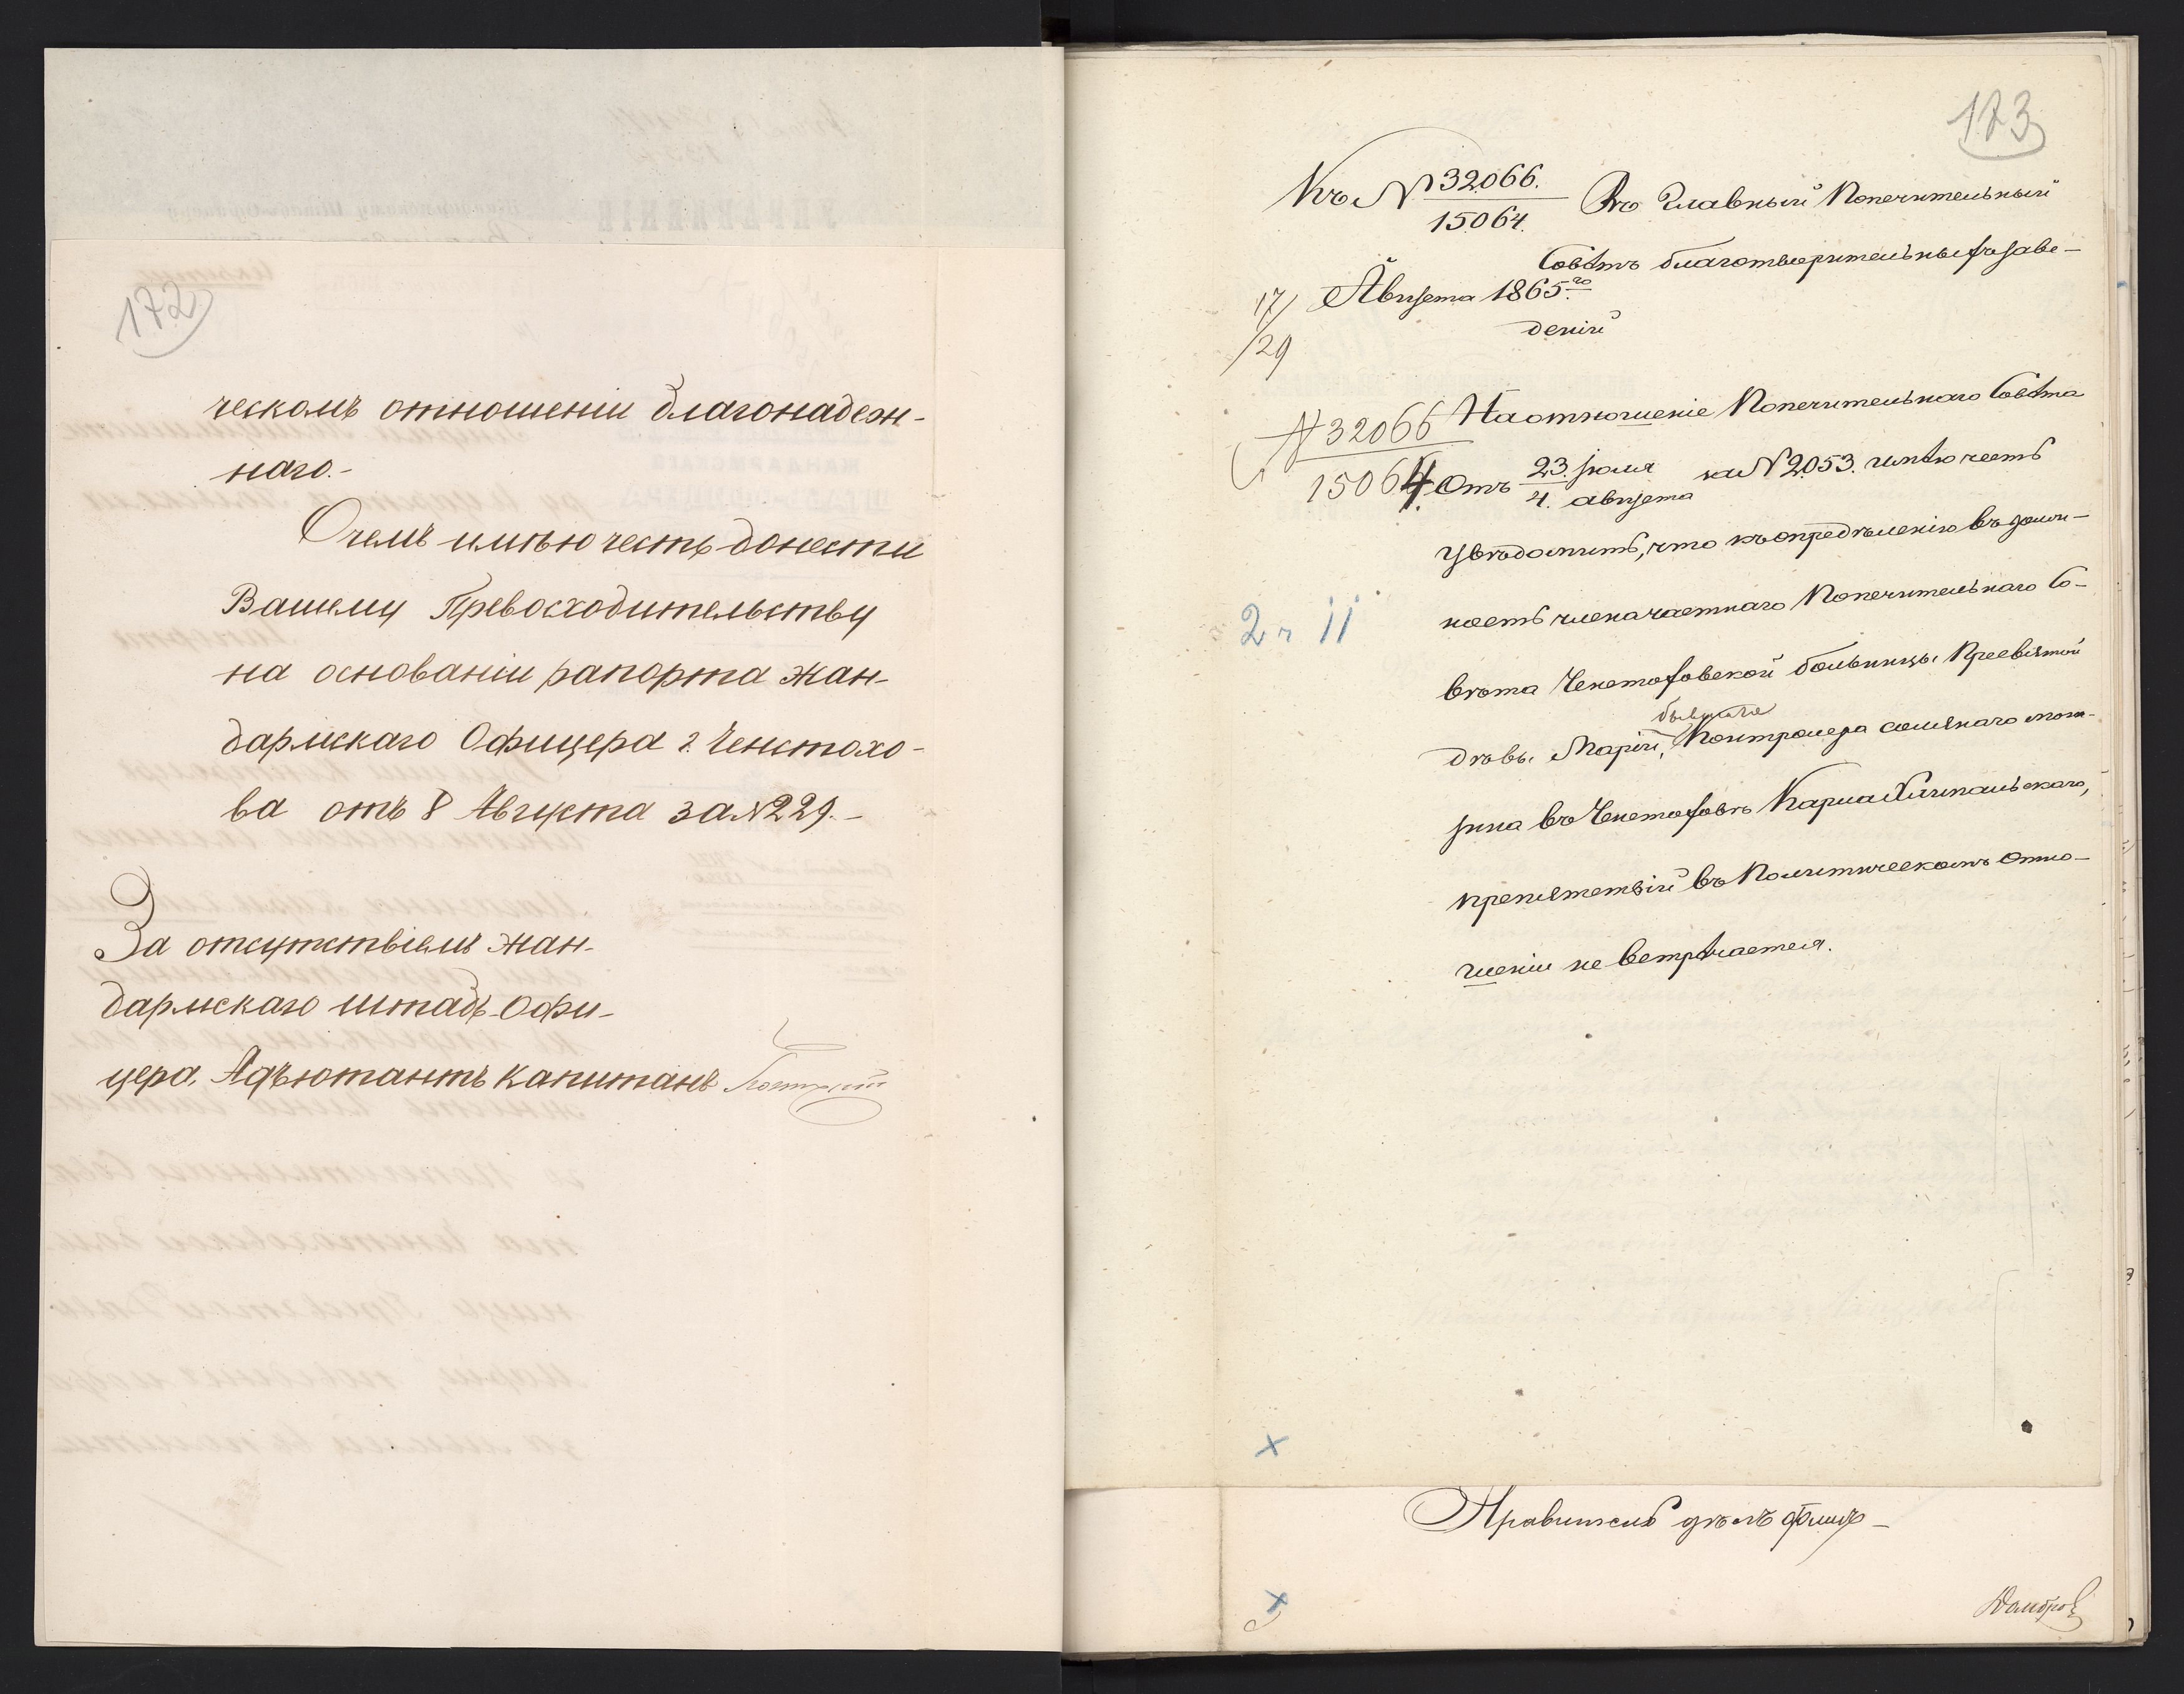 172
ческомъ отношеніи благонадеж-
наго.-
О чемъ имѣю честь донести
Вашему Превосходительству
на основаніи рапорта Жан-
дармскаго Офицера г. Ченстохо-
ва отъ 8 Августа за №229.-
За отсутствіемъ Жан-
дармскаго Штабъ-Офи-
цера, Адъютантъ Капитанъ
173
Къ № 32066.
15064.
Въ Главный Попечительный
Совѣтъ благотворительныхъ заве-
деній
17/29 Августа 1865го
№ 32066
15064
На отношеніе Попечительнаго Совѣта
отъ 23. Іюля
4. августа
за №2053. имѣю честь
увѣдомить, что къ опредѣленію въ долж-
ность члена частнаго Попечительнаго Со-
вѣта Ченстоховской больницы Пресвятой
бывшаго
Дѣвы Маріи, Контролера солянаго мага-
зина въ Ченстоховѣ Карла
препятствій въ Политическомъ отно-
шеніи не встрѣчается.
Правитель дѣлъ